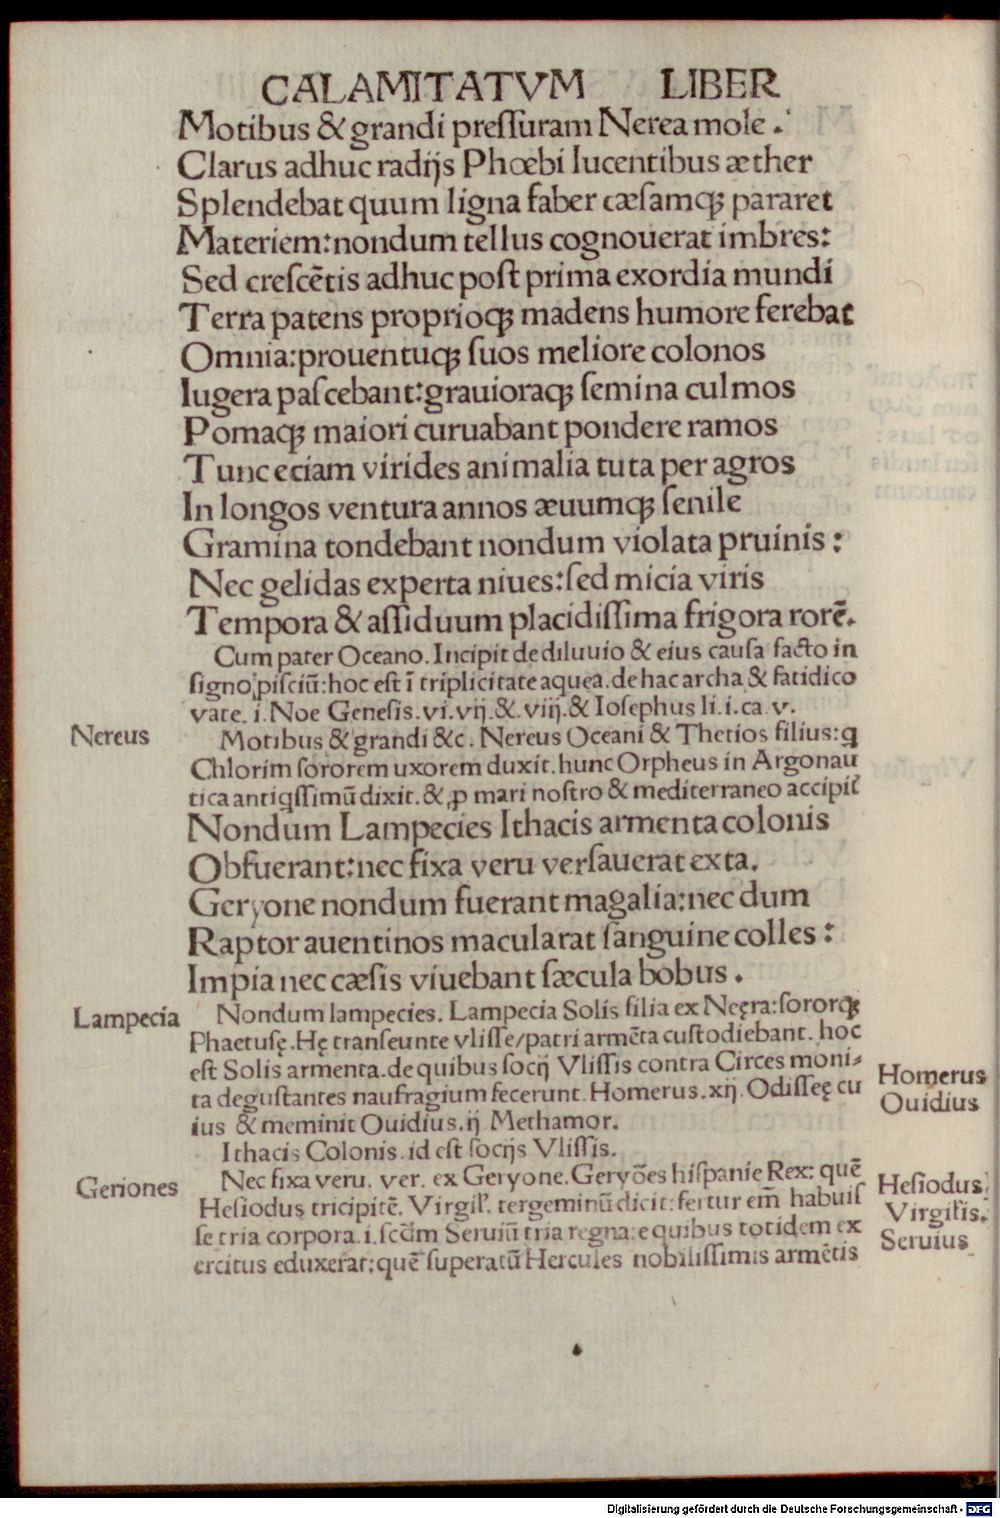 CALAMITATVM LIBER
Motibus & grandi preſſuram Nerea mole .
Clarus adhuc radijs Phœbi lucentibus æther
Splendebat quum ligna faber cæſamqꝫ pararet
Materiem:nondum tellus cognouerat imbres:
Sed creſcētis adhuc poſt prima exordia mundi
Terra patens proprioqꝫ madens humore ferebat
Omnia:prouentuqꝫ ſuos meliore colonos
Iugera paſcebant:grauioraqꝫ ſemina culmos
Pomaqꝫ maiori curuabant pondere ramos
Tunc eciam virides animalia tuta per agros
In longos ventura annos æuumqꝫ ſenile
Gramina tondebant nondum violata pruinis :
Nec gelidas experta niues:ſed micia viris
Tempora & aſſiduum placidiſſima frigora rorē.
Cum pater Oceano. Incipit de diluuio & eius cauſa facto in
ſigno piſciū:hoc eſt ī triplicitate aquea. de hac archa & fatidico
vate. i. Noe Geneſis. vi. vij. &. viij. & Ioſephus li. i. ca v.
Nereus
Motibus & grandi &c. Nereus Oceani & Thetios filius: q
Chlorim ſororem uxorem duxit. hunc Orpheus in Argonau
tica antiqſſimū dixit. & ꝓ mari noſtro & mediterraneo accipit̄
Nondum Lampecies Ithacis armenta colonis
Obfuerant:nec fixa veru verſauerat exta.
Geryone nondum fuerant magalia:nec dum
Raptor auentinos macularat ſanguine colles :
Impia nec cæſis viuebant ſæcula bobus .
Lampecia
Nondum lampecies. Lampecia Solis filia ex Neęra: ſororqꝫ
Phaetuſę. Hę tranſeunte vliſſe/patri armēta cuſtodiebant. hoc
eſt Solis armenta. de quibus ſocij Vliſſis contra Circes moni⸗
ta deguſtantes naufragium fecerunt. Homerus. xij. Odiſſeę cu
ius & meminit Ouidius. ij Methamor.
Homerus
Ouidius
Ithacis Colonis. id eſt ſocijs Vliſſis.
Geriones
Nec fixa veru. ver. ex Geryone. Geryōes hiſpanie Rex: quē
Heſiodus tricipitē. Virgil'. tergeminū dicit: fertur em̄ habuiſ
ſe tria corpora. i. ſcd̄m Seruiū tria regna: e quibus totidem ex
ercitus eduxerat: quē ſuperatū Hercules nobiliſſimis armētis
Heſiodus
Virgilis.
Seruius
Digitalisierung gefördert durch die Deutsche Forschungsgemeinschaft - DFG